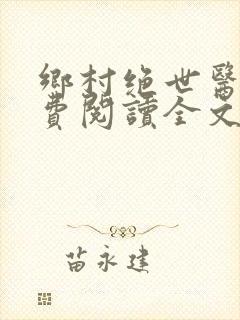 鄉村绝世醫
費閱讀全文
苗永建